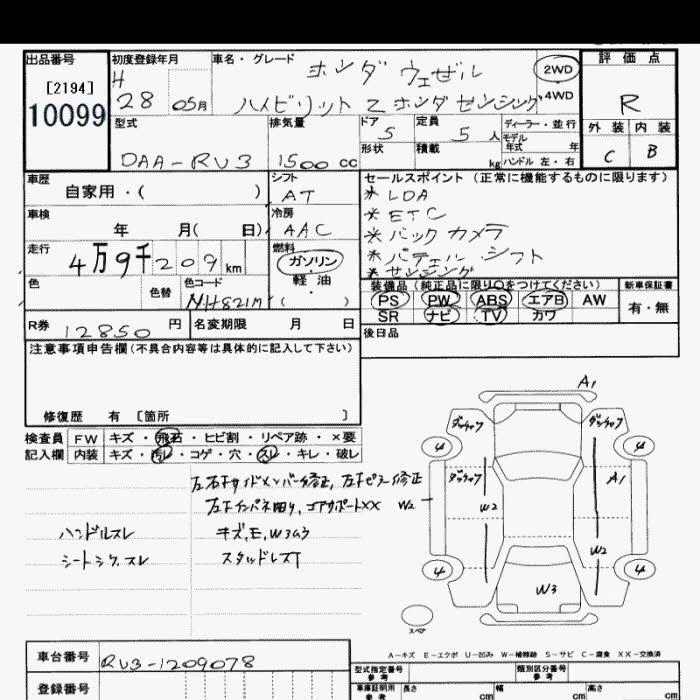 出品番号 初度登録年月 車名・グレード 評価点
[2194] H ホンダ ヴェゼル 2WD
10099 28 05月 ハイビリット Z ホンダセンシング 4WD R
型式 排気量 ドア 定員 ディーラー・並行 外装 内装
5 5人 モデル年式 年
DAA-RU3 1500cc 形状 積載 kg ハンドル左・右 C B
車歴 シフト セールスポイント(正常に機能するものに限ります)
自家用・( ) AT * LDA
車検 冷房 * ETC
年 月( 日) AAC * バックカメラ
走行 燃料 * パドルシフト
4万9千209km ガソリン * センシング
色 色替 色コード 軽油 装備品(純正品に限り○をつけてください) 新車保証書
NH821M ( ) PS PW ABS エアB AW 有・無
SR ナビ TV カワ
R券 12850円 名変期限 月 日 後日品
注意事項申告欄(不具合内容等は具体的に記入して下さい)
修復歴 有 [箇所 ]
検査員 FW キズ・飛石・ヒビ割・リペア跡・×要
記入欄 内装 キズ・汚レ・コゲ・穴・スレ・キレ・破レ
左右Fサイドメンバー修正,左Fピラー修正
左Fインパネ曲り,コアサポートXX W2
ハンドルスレ キズ,E,W3ムラ
シートシワ,スレ スタッドレス
A1
4 4
A1
W2
W2
4 4
W3
スペア
A-キズ E-エクボ U-凹み W-補修跡 S-サビ C-腐食 XX-交換済
車台番号 RU3-1209078 型式指定番号 参考 類別区分番号 参考
登録番号 車庫証明用 参考 長さ cm 幅 cm 高さ cm